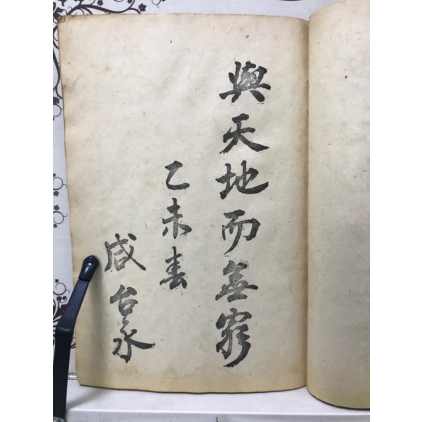 與天地而無窮
乙未春
咸台永